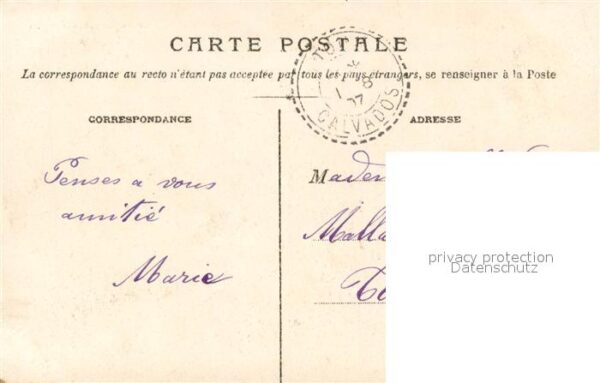 CARTE POSTALE
La correspondance au recto n'étant pas acceptée par tous les pays étrangers, se renseigner à la Poste
CALVADOS
CORRESPONDANCE
ADRESSE
Penses a vous
amitié
Marie
privacy protection
Datenschutz